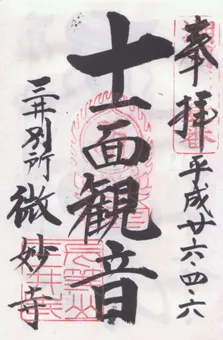 奉拝 平成廿六・四・六
十一面観音
三井別所
微妙寺